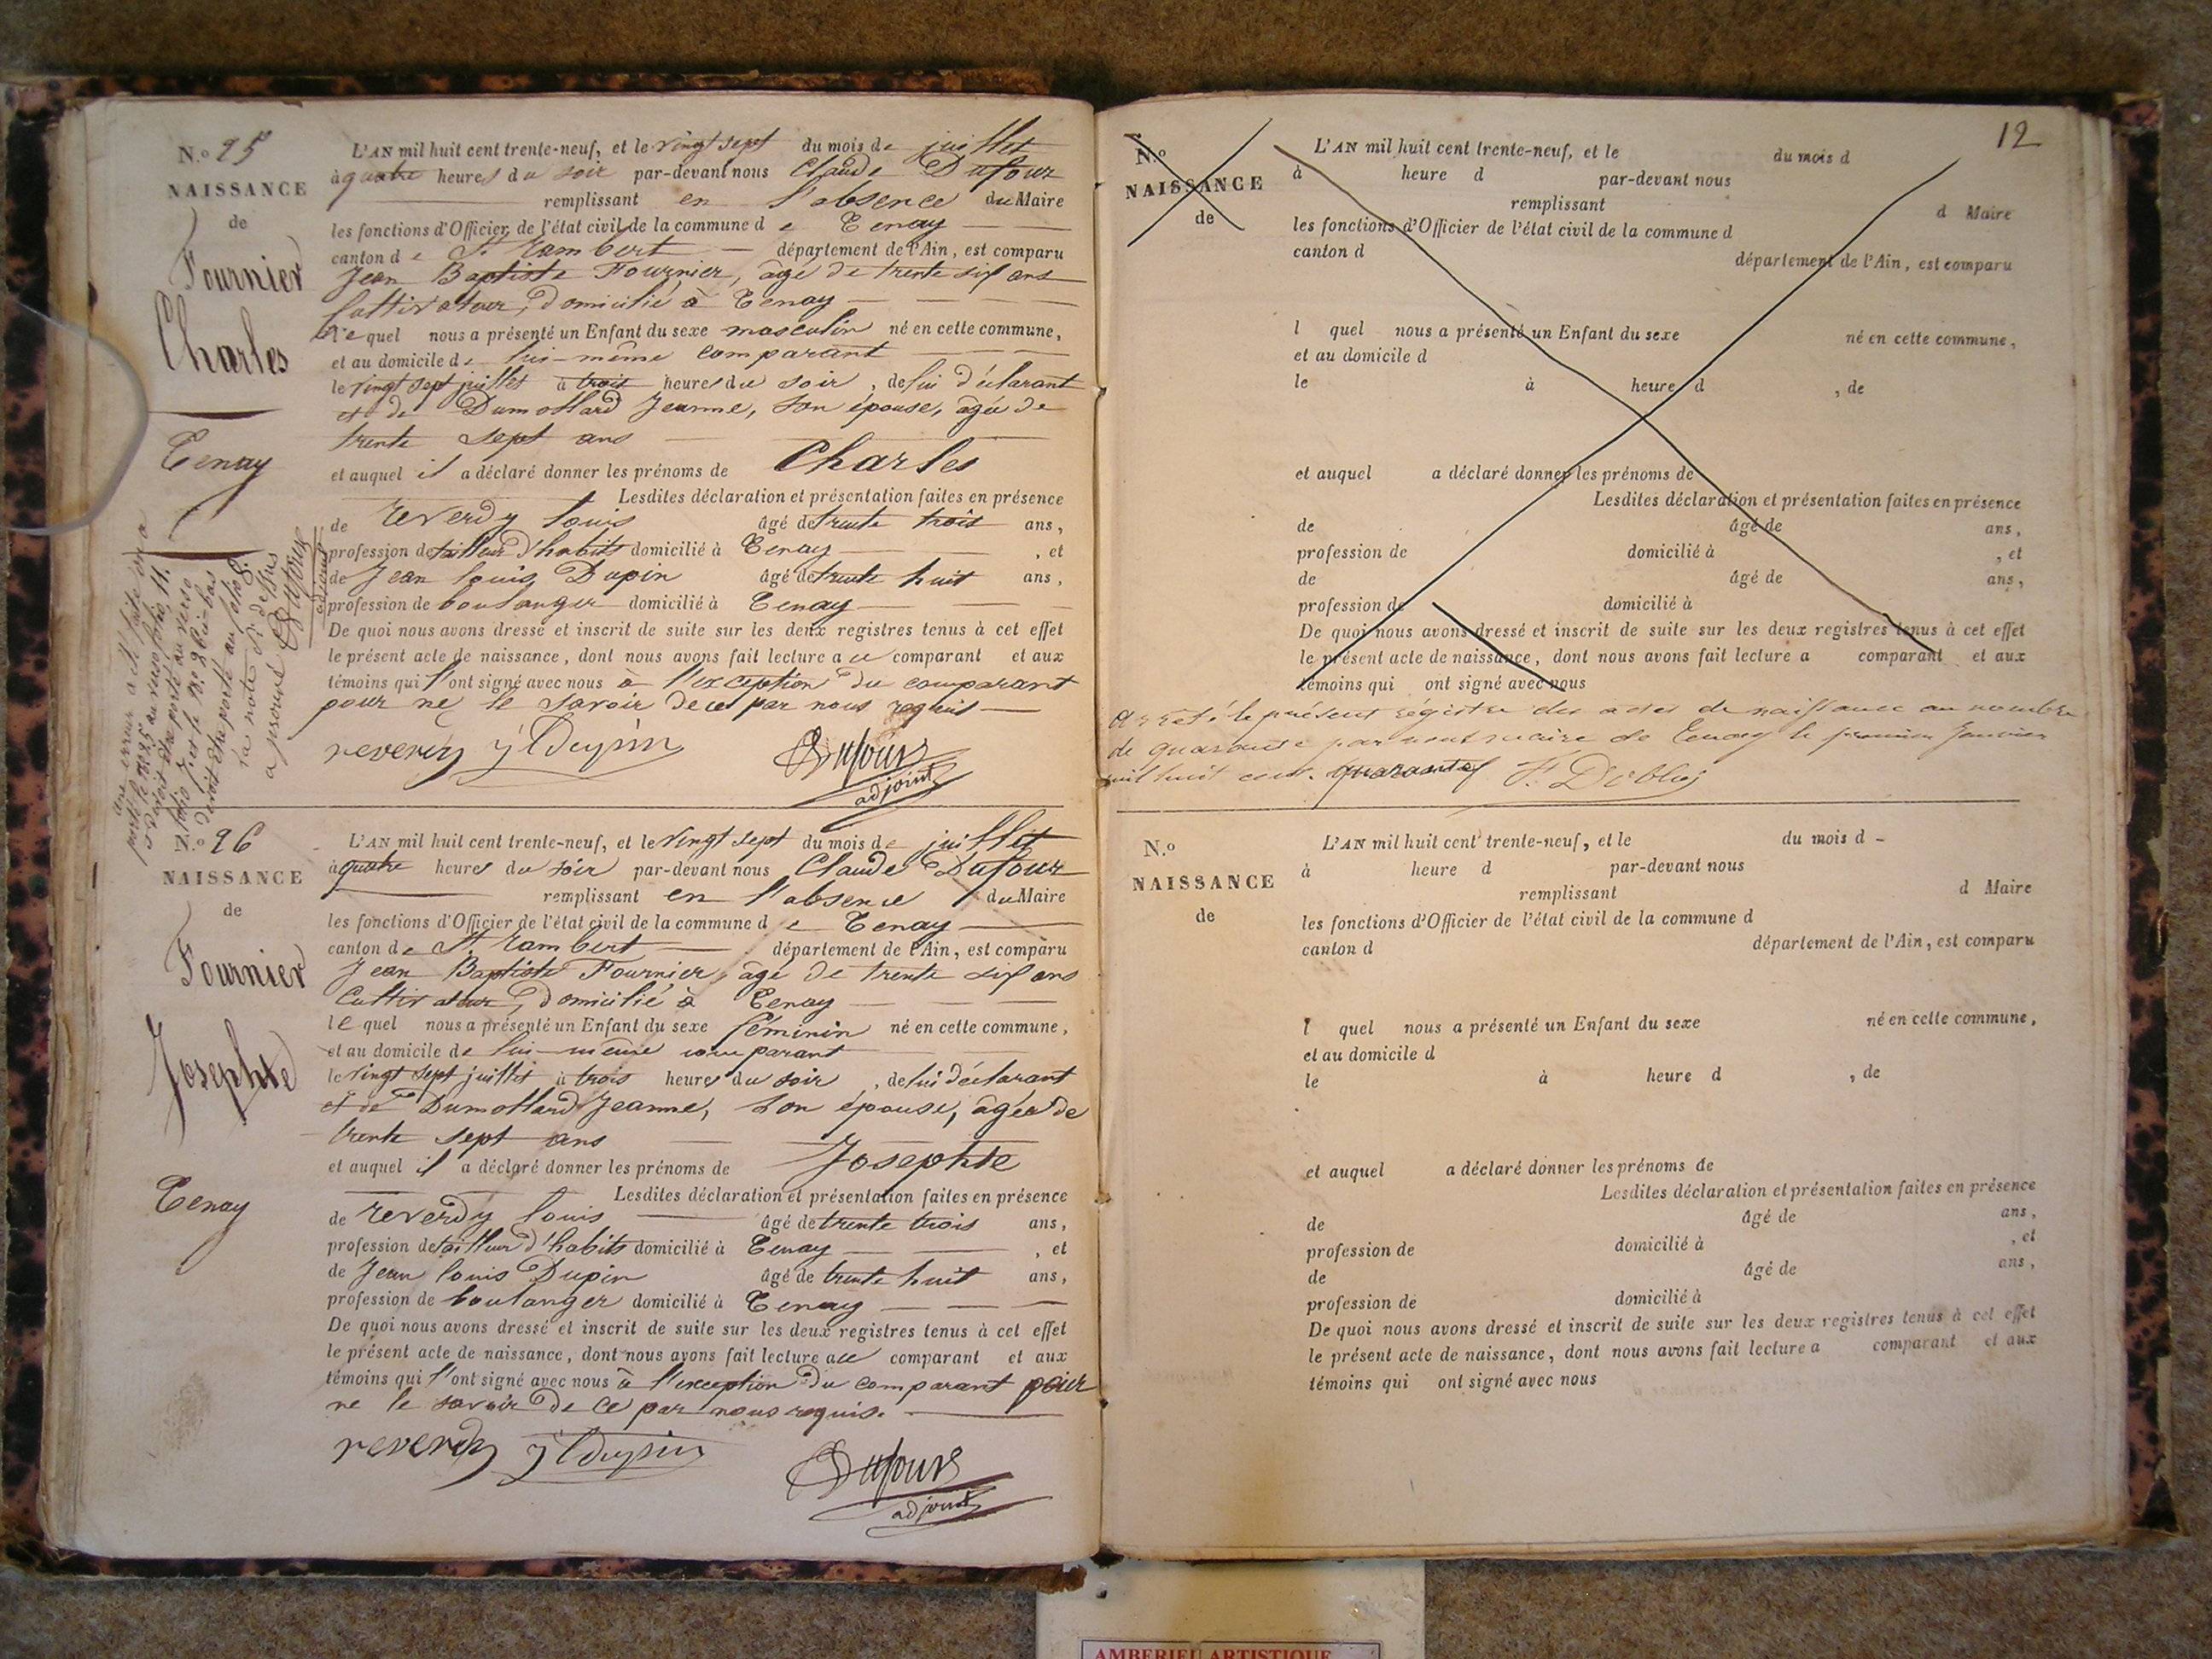 N.º 25
NAISSANCE
de
Fournier
Charles
Tenay
L'AN mil huit cent trente-neuf, et le vingt sept du mois de juillet
à quatre heures du soir par-devant nous Claude Dufour
remplissant en l'absence du Maire
les fonctions d'Officier de l'état civil de la commune de Tenay
canton de St. Rambert département de l'Ain, est comparu
Jean Baptiste Fournier, âgé de trente six ans
Cultivateur, domicilié à Tenay
lequel nous a présenté un Enfant du sexe masculin né en cette commune,
et au domicile de lui-même comparant
le vingt sept juillet à trois heures du soir, de lui déclarant
et de Dumollard Jeanne, son épouse, âgée de
trente sept ans
et auquel il a déclaré donner les prénoms de Charles
Lesdites déclaration et présentation faites en présence
de reverdy louis âgé de trente trois ans,
profession de tailleur d'habits domicilié à Tenay, et
de Jean louis Dupin âgé de trente huit ans,
profession de boulanger domicilié à Tenay
De quoi nous avons dressé et inscrit de suite sur les deux registres tenus à cet effet
le présent acte de naissance, dont nous avons fait lecture a ce comparant et aux
témoins qui l'ont signé avec nous à l'exception du comparant
pour ne le savoir de ce par nous requis
reverdy jl Dupin Dufour
adjoint
une erreur a été faite on a
porté le No. 25 au verso folio 11.
No. 26 ci-bas
devoit être porté au folio 8.
la note ci dessus
approuvé Dufour
adjoint
N.º 26
NAISSANCE
de
Fournier
Josephte
Tenay
L'AN mil huit cent trente-neuf, et le vingt sept du mois de juillet
à quatre heures du soir par-devant nous Claude Dufour
remplissant en l'absence du Maire
les fonctions d'Officier de l'état civil de la commune de Tenay
canton de St. Rambert département de l'Ain, est comparu
Jean Baptiste Fournier, âgé de trente six ans
Cultivateur, domicilié à Tenay
lequel nous a présenté un Enfant du sexe féminin né en cette commune,
et au domicile de lui-même comparant
le vingt sept juillet à trois heures du soir, de lui déclarant
et de Dumollard Jeanne, son épouse, âgée de
trente sept ans
et auquel il a déclaré donner les prénoms de Josephte
Lesdites déclaration et présentation faites en présence
de reverdy louis âgé de trente trois ans,
profession de tailleur d'habits domicilié à Tenay, et
de Jean louis Dupin âgé de trente huit ans,
profession de boulanger domicilié à Tenay
De quoi nous avons dressé et inscrit de suite sur les deux registres tenus à cet effet
le présent acte de naissance, dont nous avons fait lecture a ce comparant et aux
témoins qui l'ont signé avec nous à l'exception du comparant pour
ne le savoir de ce par nous requis.
reverdy jl Dupin Dufour
adjoint
12
N.º
NAISSANCE
de
L'AN mil huit cent trente-neuf, et le du mois d
à heure d par-devant nous
remplissant d Maire
les fonctions d'Officier de l'état civil de la commune d
canton d département de l'Ain, est comparu
l quel nous a présenté un Enfant du sexe né en cette commune,
et au domicile d
le à heure d , de
et auquel a déclaré donner les prénoms de
Lesdites déclaration et présentation faites en présence
de âgé de ans,
profession de domicilié à , et
de âgé de ans,
profession de domicilié à
De quoi nous avons dressé et inscrit de suite sur les deux registres tenus à cet effet
le présent acte de naissance, dont nous avons fait lecture a comparant et aux
témoins qui ont signé avec nous
Arrêté le présent régistre des actes de naissance au nombre
de quarante par nous maire de Tenay le premier Janvier
mil huit cent quarante
N.º
NAISSANCE
de
L'AN mil huit cent trente-neuf, et le du mois d
à heure d par-devant nous
remplissant d Maire
les fonctions d'Officier de l'état civil de la commune d
canton d département de l'Ain, est comparu
l quel nous a présenté un Enfant du sexe né en cette commune,
et au domicile d
le à heure d , de
et auquel a déclaré donner les prénoms de
Lesdites déclaration et présentation faites en présence
de âgé de ans,
profession de domicilié à , et
de âgé de ans,
profession de domicilié à
De quoi nous avons dressé et inscrit de suite sur les deux registres tenus à cet effet
le présent acte de naissance, dont nous avons fait lecture a comparant et aux
témoins qui ont signé avec nous
AMBERIEU ARTISTIQUE